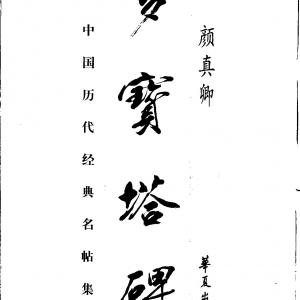 颜真卿
華夏
多寶塔碑
中国历代经典名帖集